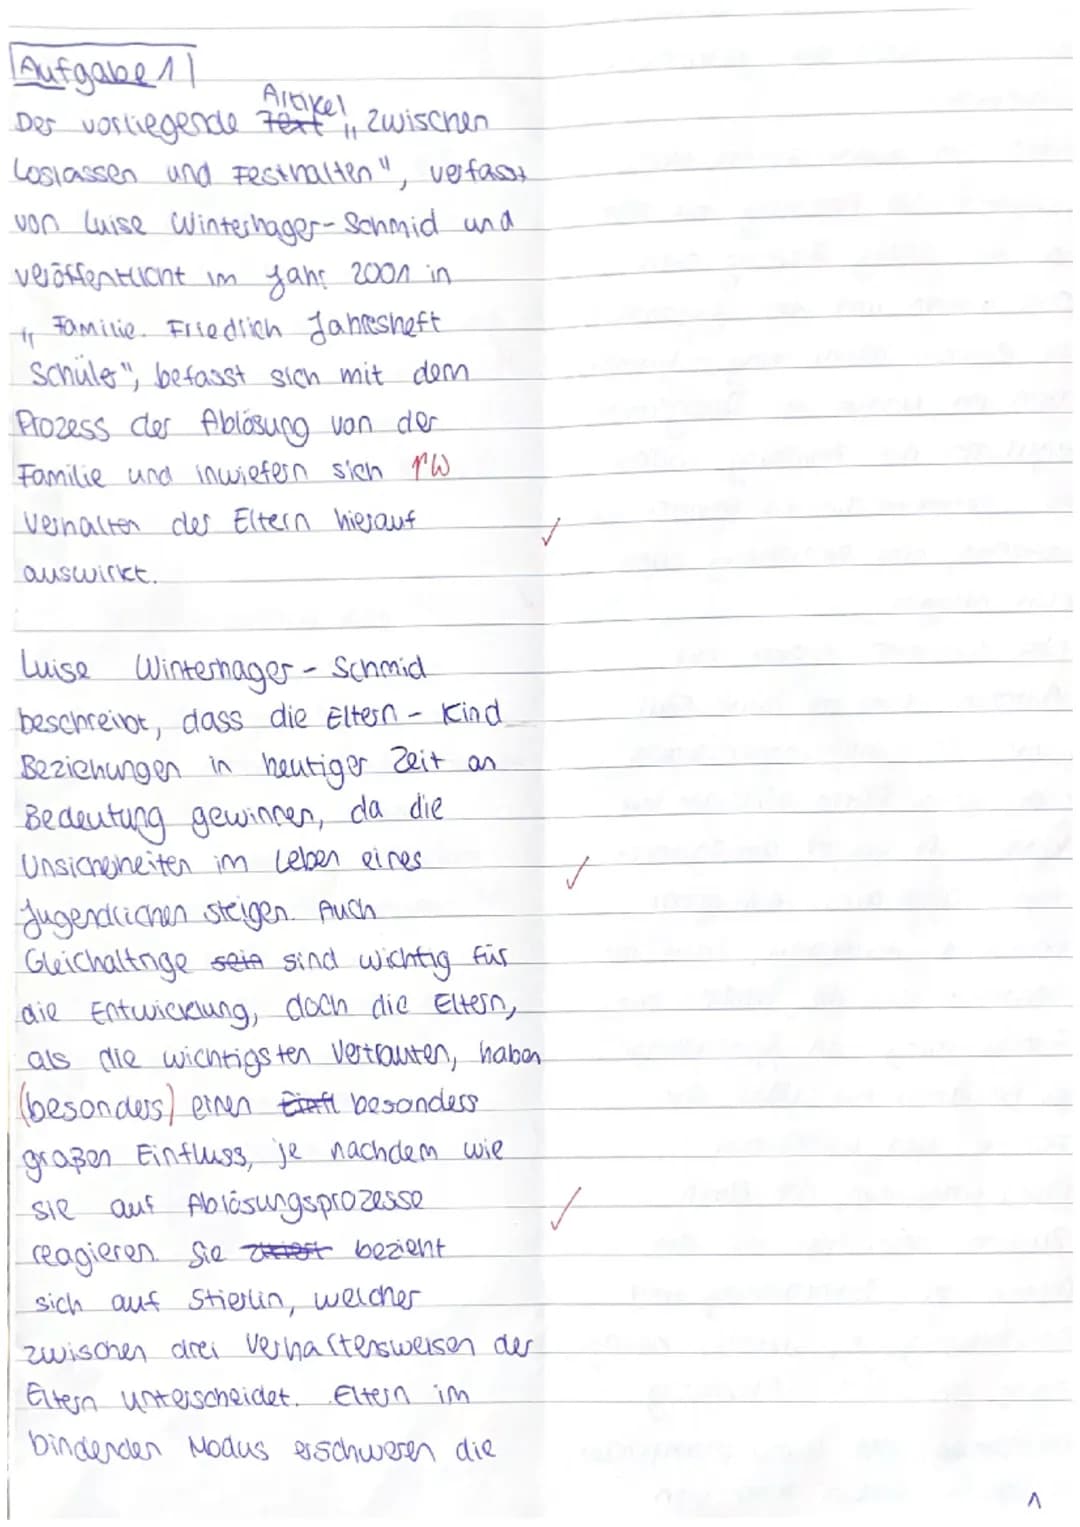 Aufgabe 1
Artikel
Der vorliegende Text „Zwischen
Loslassen und Festhalten", verfasst
von Luise Winterhager-Schmid und
veröffentlicht im Jahr 2001 in
„Familie. Friedrich Jahresheft
Schüler", befasst sich mit dem
Prozess der Ablösung von der
Familie und inwiefern sich rW
Verhalten der Eltern hierauf
auswirkt.
Luise Winterhager-Schmid
beschreibt, dass die Eltern-Kind
Beziehungen in heutiger Zeit an
Bedeutung gewinnen, da die
Unsicherheiten im Leben eines
Jugendlichen steigen. Auch
Gleichaltrige sein sind wichtig für
die Entwicklung, doch die Eltern,
als die wichtigsten Vertrauten, haben
(besonders) einen Einfl besonders
großen Einfluss, je nachdem wie
sie auf Ablösungsprozesse
reagieren. Sie zitiert bezieht
sich auf Stierlin, welcher
zwischen drei Verhaltensweisen der
Eltern unterscheidet. Eltern im
bindenden Modus erschweren die
1